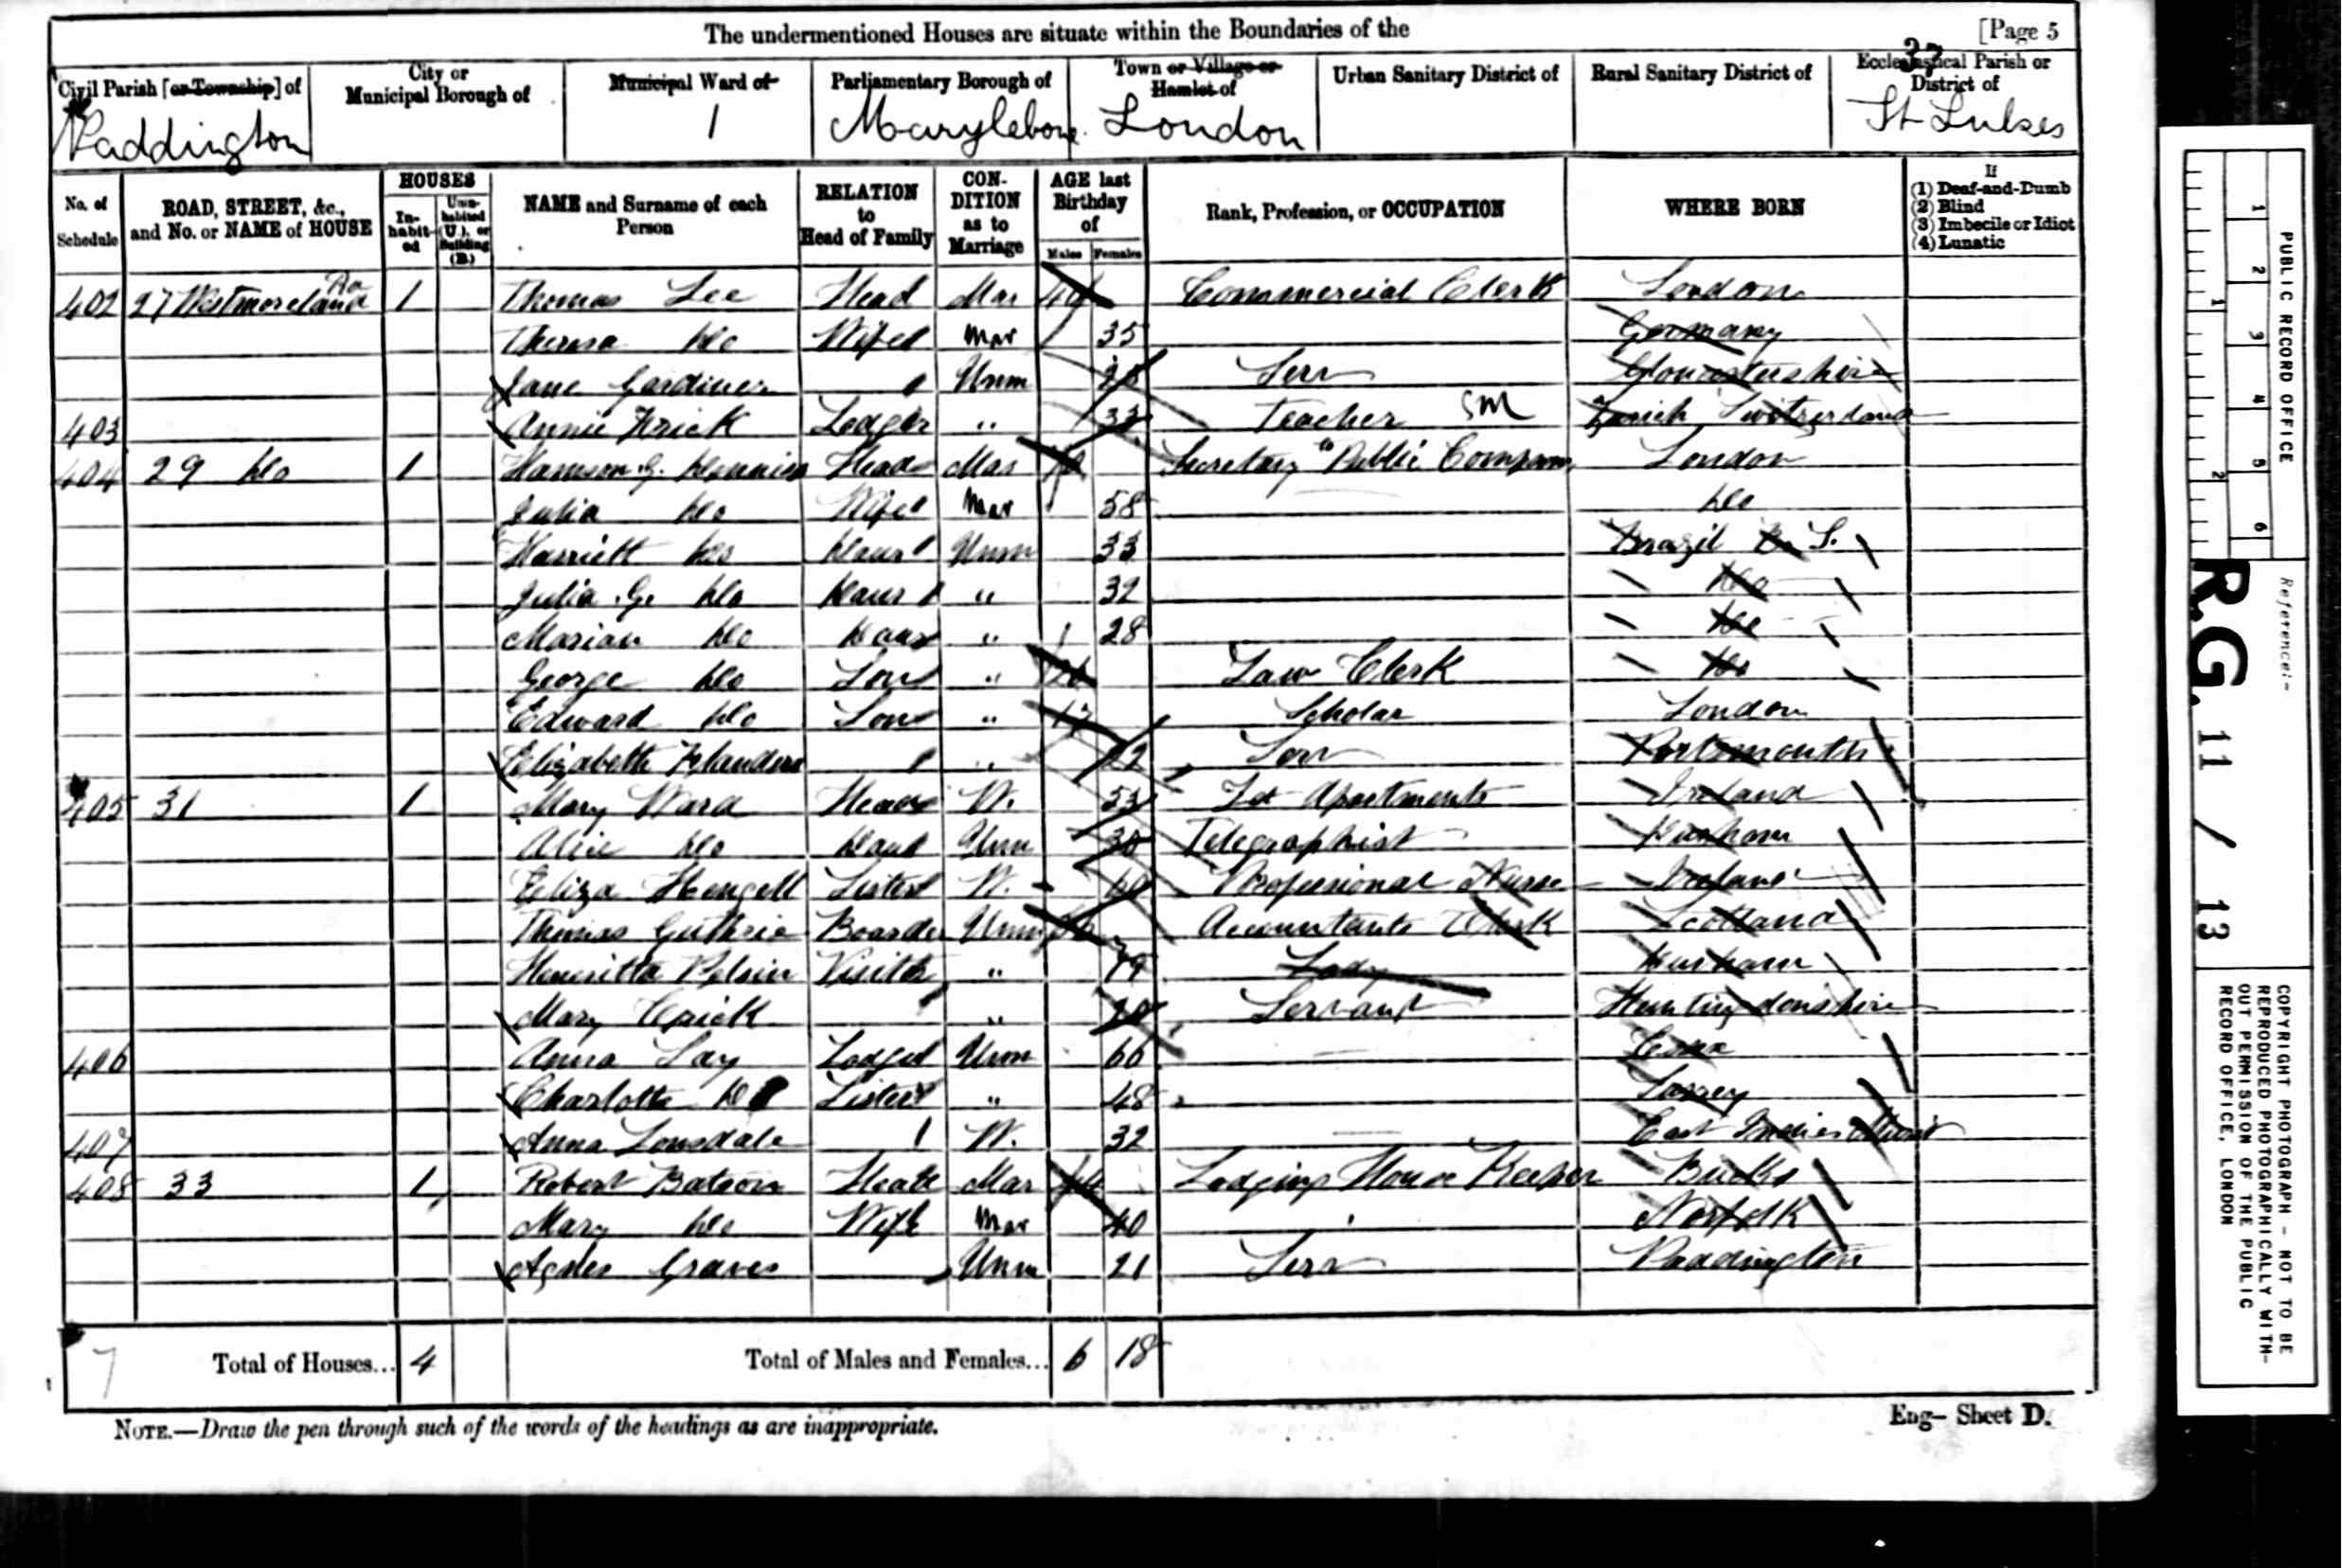 The undermentioned Houses are situate within the Boundaries of the [Page 5
37
Civil Parish [or Township] of City or Municipal Borough of Municipal Ward of Parliamentary Borough of Town or Village or Hamlet of Urban Sanitary District of Rural Sanitary District of Ecclesiastical Parish or District of
Paddington 1 Marylebone London St Lukes
No. of Schedule ROAD, STREET, &c., and No. or NAME of HOUSE HOUSES Inhabited Uninhabited (U.), or Building (B.) NAME and Surname of each Person RELATION to Head of Family CONDITION as to Marriage AGE last Birthday of Males Females Rank, Profession, or OCCUPATION WHERE BORN If (1) Deaf-and-Dumb (2) Blind (3) Imbecile or Idiot (4) Lunatic
402 27 Westmoreland Ro 1 Thomas Lee Head Mar Commercial Clerk London
Theresa Do Wife Mar 35 Germany
Jane Gardiner Unm Serv Gloucestershire
403 Annie Lodger " 33 Teacher SM Zurich Switzerland
404 29 Do 1 Head Mar Secretary to Public Company London
Julia Do Wife Mar 58 Do
Harriett Do Daur Unm 33 Brazil B. S.
Julia G. Do Daur " 32 Do
Marian Do Daur " 28 Do
George Do Son " Law Clerk Do
Edward Do Son " 17 Scholar London
Elizabeth Flanders " 22 Serv Portsmouth
405 31 1 Mary Ward Head W. 53 Let Apartments Ireland
Alice Do Daur Unm 30 Telegraphist Durham
Eliza Sister W. Professional Nurse Ireland
Thomas Guthrie Boarder Unm Accountants Clerk Scotland
Henrietta Visitor " 79 Lady Durham
Mary " Servant Huntingdonshire
406 Anna Lay Lodger Unm 60 Essex
Charlotte Do Sister " 48 Surrey
407 Anna Lonsdale W. 32 East Indies
408 33 1 Robert Batson Head Mar Lodging House Keeper Bucks
Mary Do Wife Mar 40 Norfolk
Agnes Graves Unm 21 Serv Paddington
7 Total of Houses... 4 Total of Males and Females... 6 18
NOTE.—Draw the pen through such of the words of the headings as are inappropriate. Eng— Sheet D.
PUBLIC RECORD OFFICE
1 2 3 4 5 6
1 2
Reference:-
R.G. 11 / 13
COPYRIGHT PHOTOGRAPH - NOT TO BE
REPRODUCED PHOTOGRAPHICALLY WITH-
OUT PERMISSION OF THE PUBLIC
RECORD OFFICE, LONDON